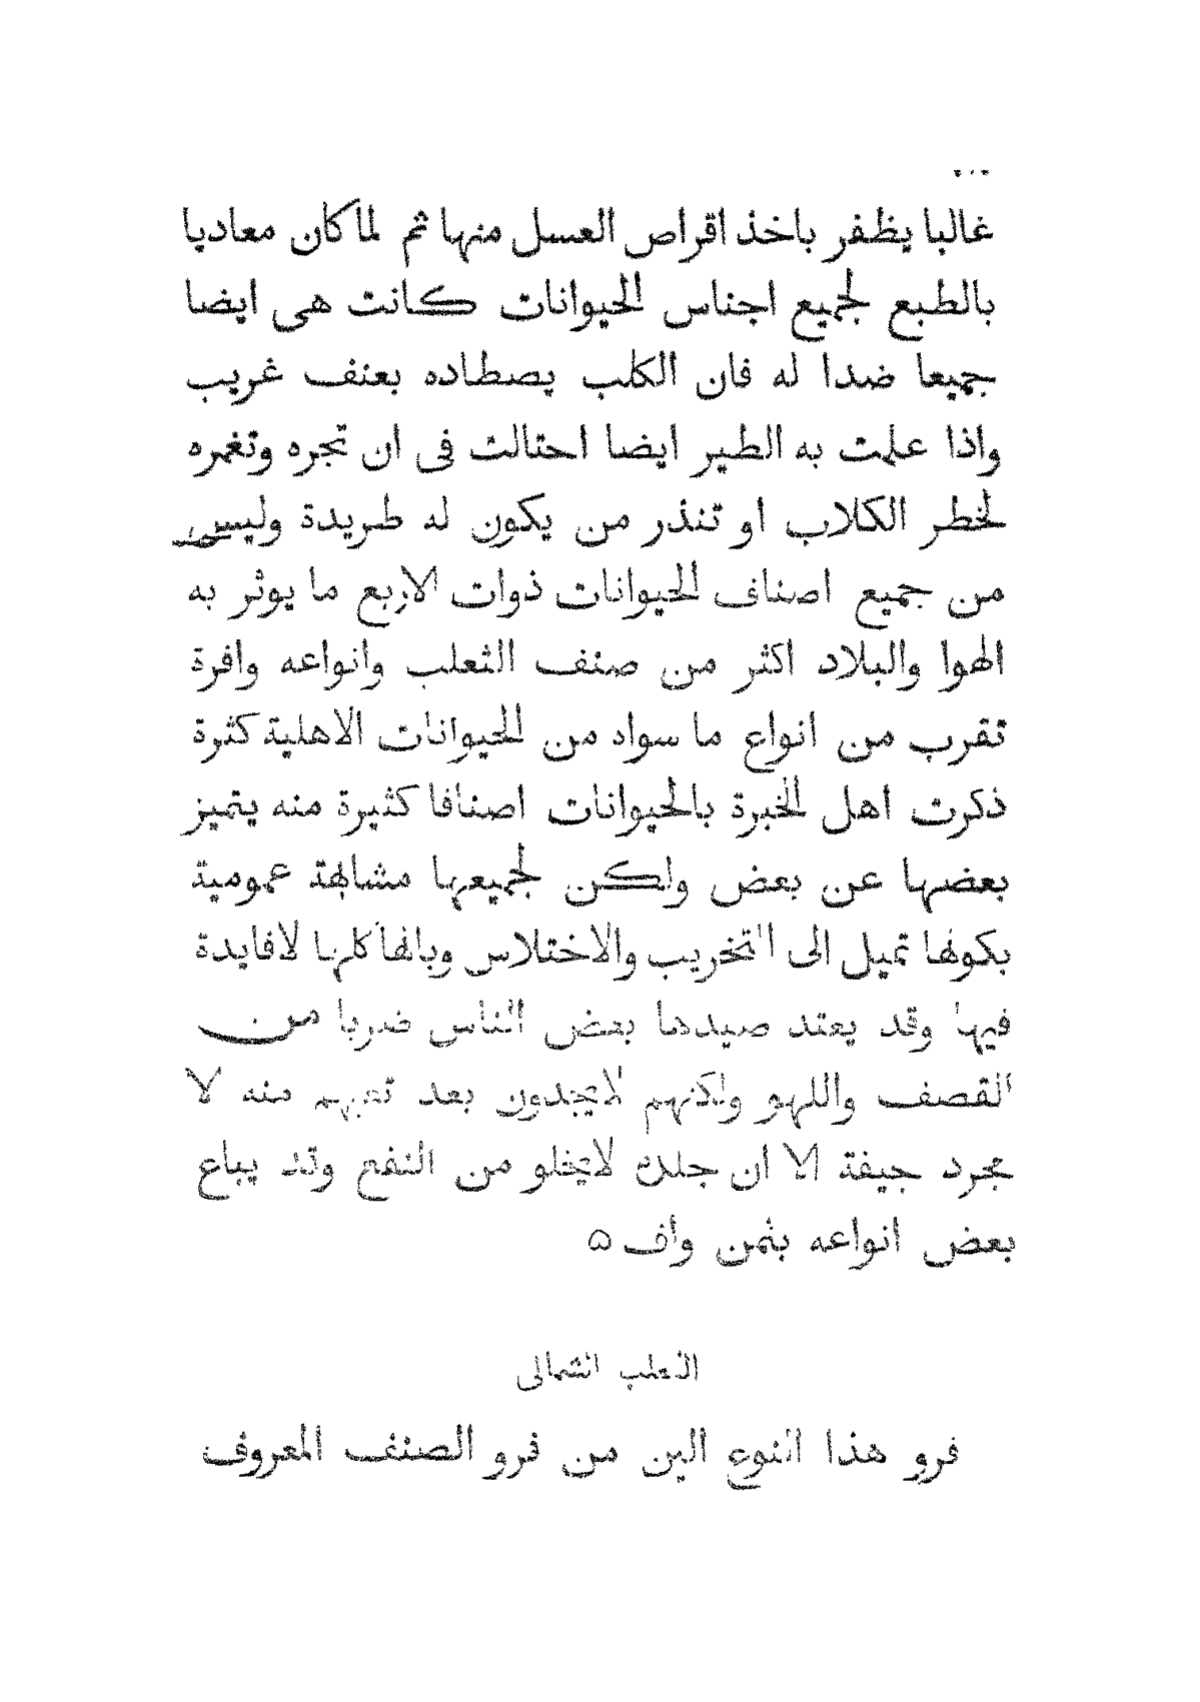 غالبا يظفر باخذ اقراص العسل منها ثم لما كان معاديا
بالطبع لجميع اجناس الحيوانات كانت هى ايضا
جميعا ضدا له فان الكلب يصطاده بعنف غريب
واذا علمت به الطير ايضا احتالت فى ان تجره وتغمره
لخطر الكلاب او تنذر من يكون له طريدة وليس
من جميع اصناف الحيوانات ذوات الاربع ما يوثر به
الهوا والبلاد اكثر من صنف الثعلب وانواعه وافرة
تقرب من انواع ما سواد من الحيوانات الاهلية كثرة
ذكرت اهل الخبرة بالحيوانات اصنافا كثيرة منه يتميز
بعضها عن بعض ولكن لجميعها مشابهة عمومية
بكونها تميل الى التخريب والاختلاس وبانها كلها لا فايدة
فيها وقد يعتد صيدها بعض الناس ضربا من
القصف واللهو ولكنهم لا يجدون بعد تعبهم منه الا
مجرد جيفة الا ان جلده لا يخلو من النفع وقد يباع
بعض انواعه بثمن واف ۵
الثعلب الشمالى
فرو هذا النوع الين من فرو الصنف المعروف